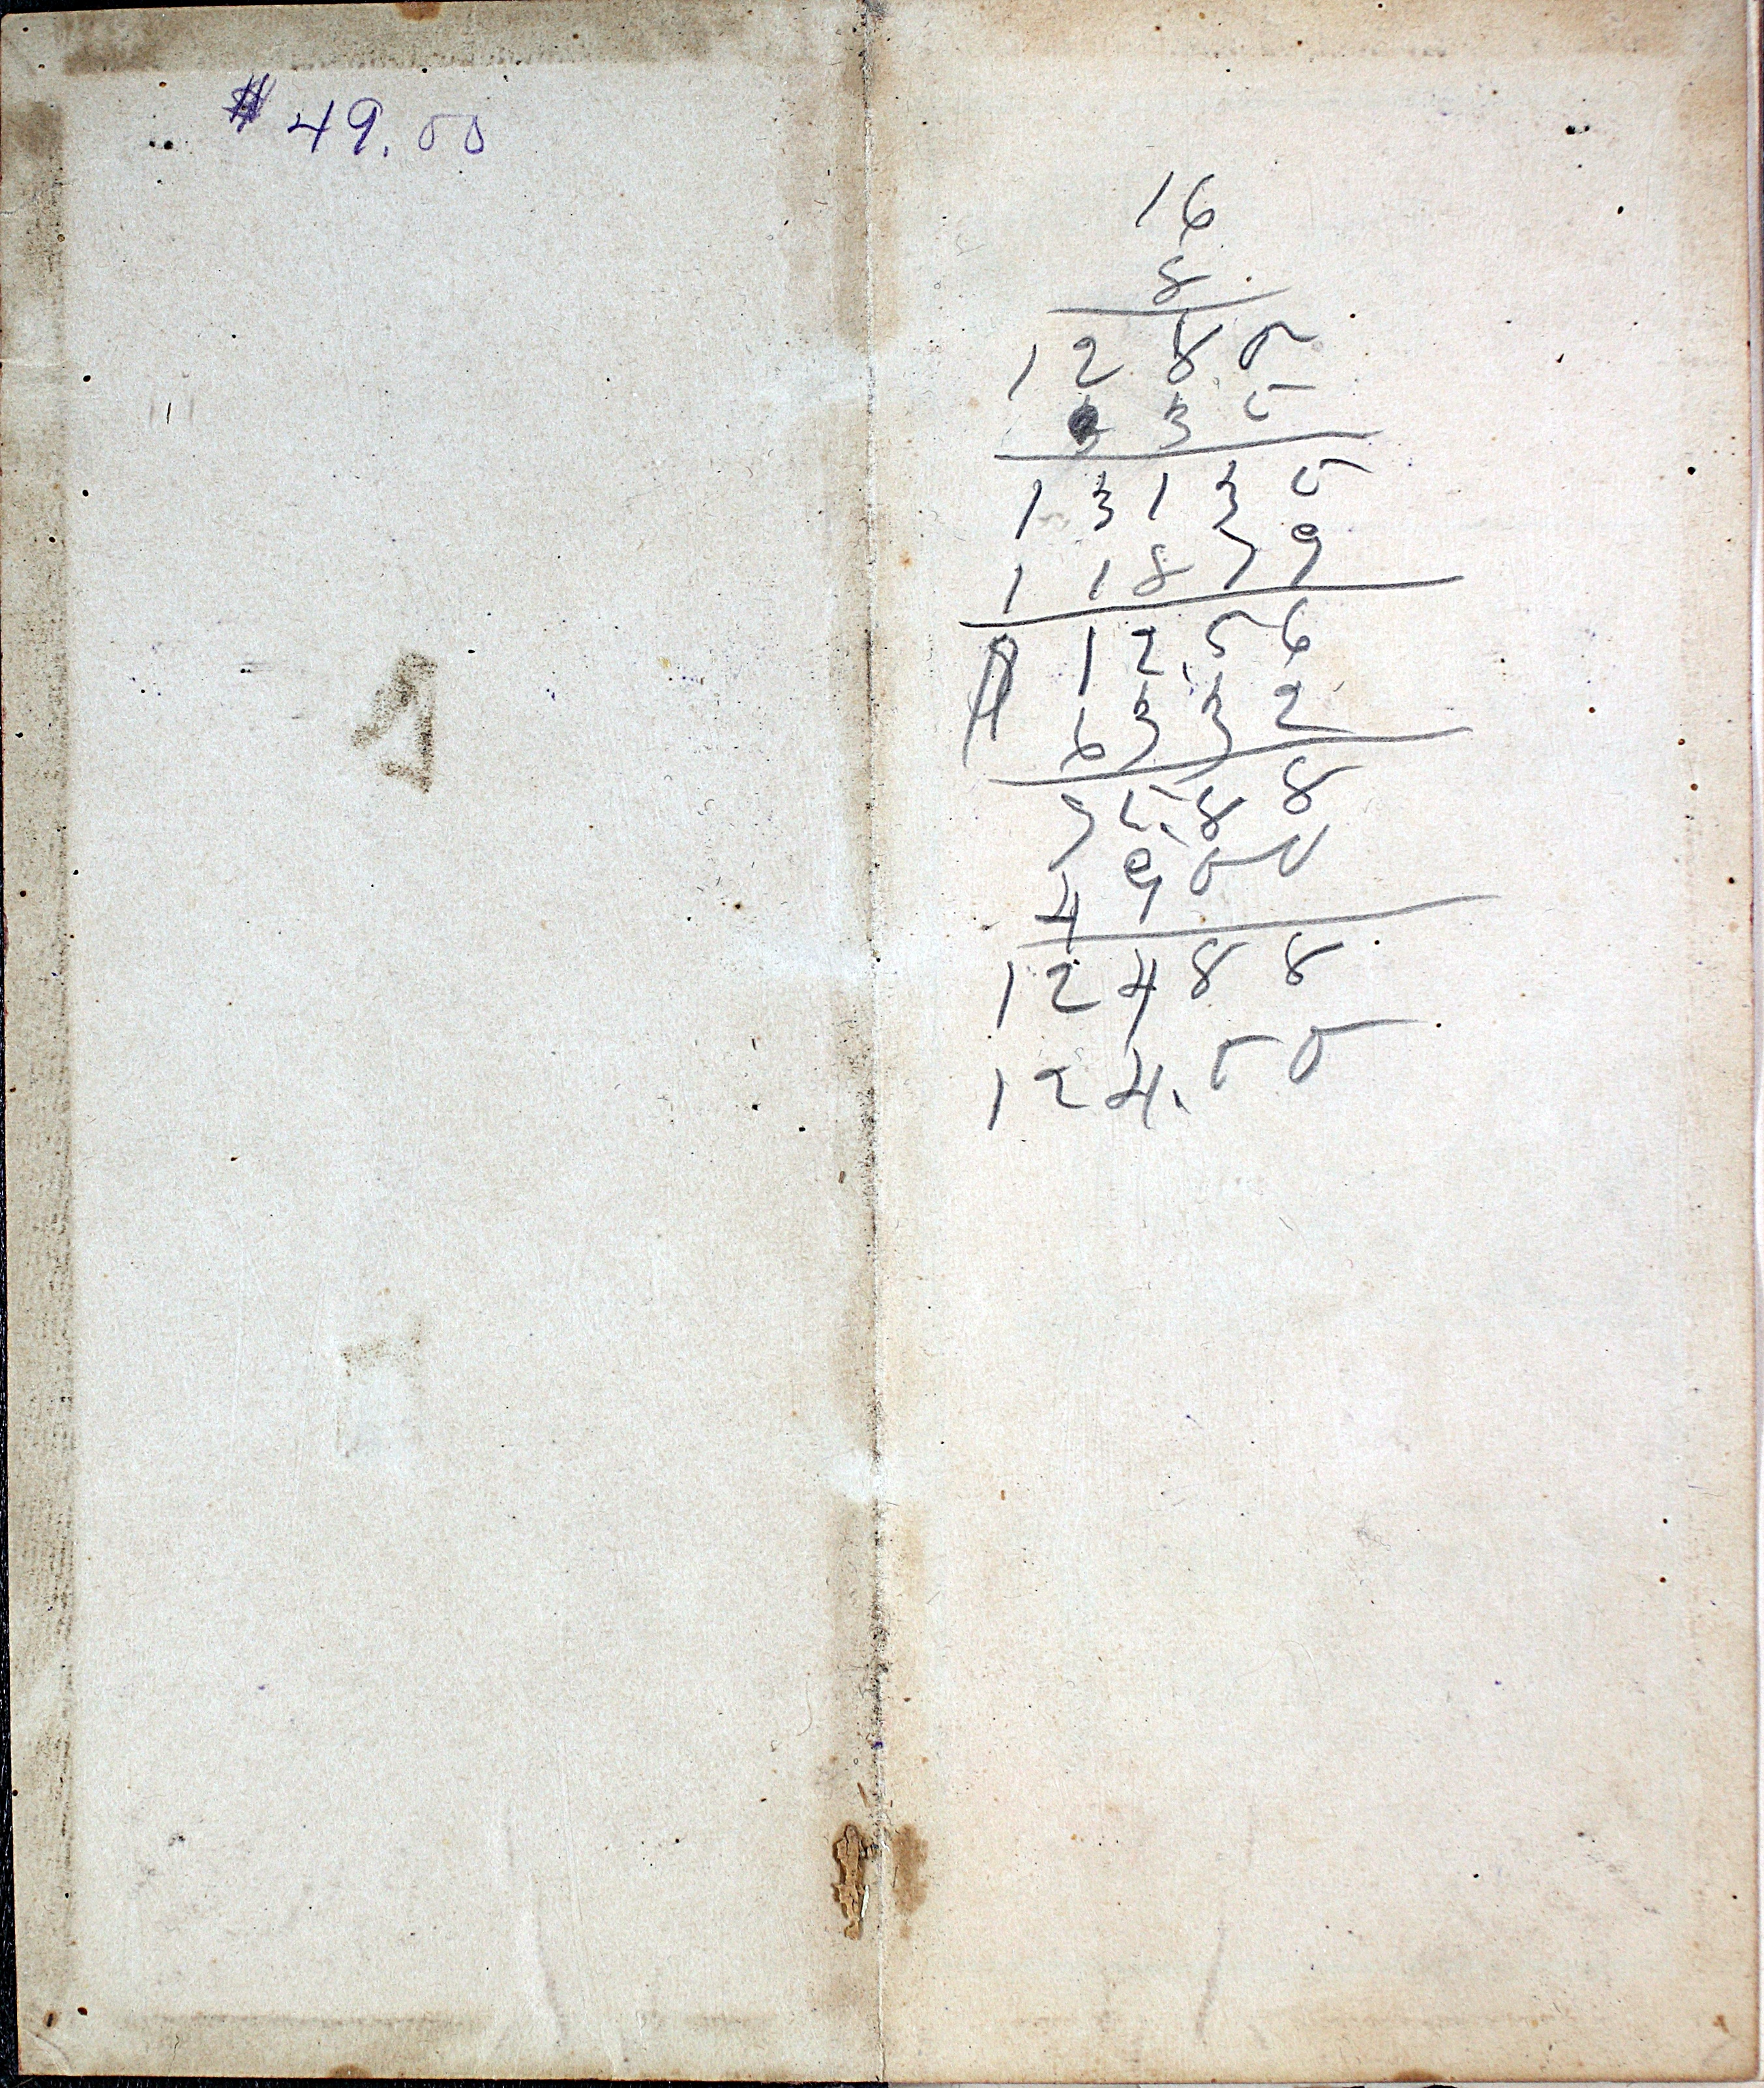 $ 49.00
16
8
1280
335
13135
11879
$ 12.56
6332
75.88
4900
12488
124.50